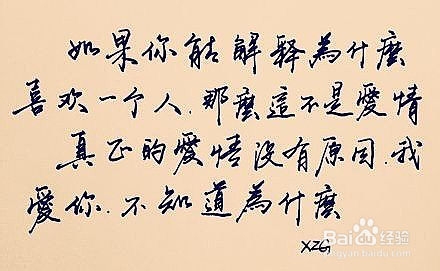 如果你能解释為什麼
喜欢一个人.那麼這不是愛情
真正的愛情没有原因.我
愛你.不知道為什麼
XZG
Bai度经验
jingyan.baidu.com